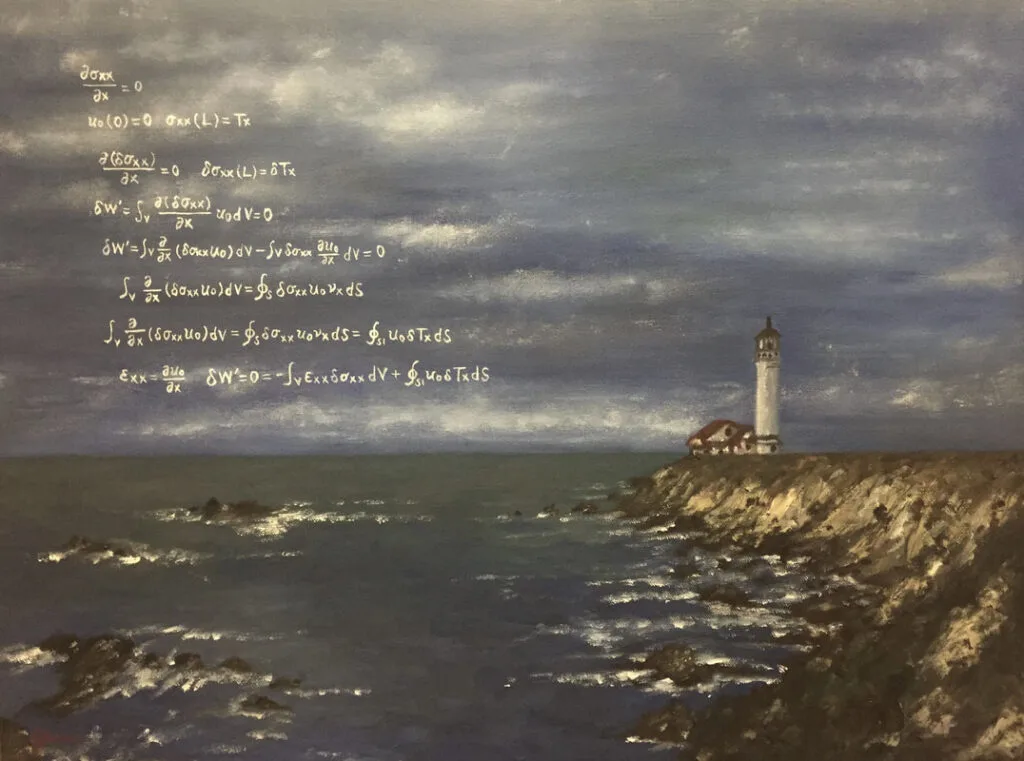 ∂σxx/∂x = 0
u₀(0)=0 σxx(L)=Tx
∂(δσxx)/∂x = 0 δσxx(L)=δTx
δW'=∫v ∂(δσxx)/∂x u₀dV=0
δW'=∫v ∂/∂x (δσxxu₀)dV-∫vδσxx ∂u₀/∂x dV=0
∫v ∂/∂x (δσxxu₀)dV=∮s δσxxu₀νxdS
∫v ∂/∂x (δσxxu₀)dV=∮sδσxxu₀νxdS=∮s₁u₀δTxdS
εxx=∂u₀/∂x δW'=0=-∫vεxxδσxxdV+∮s₁u₀δTxdS